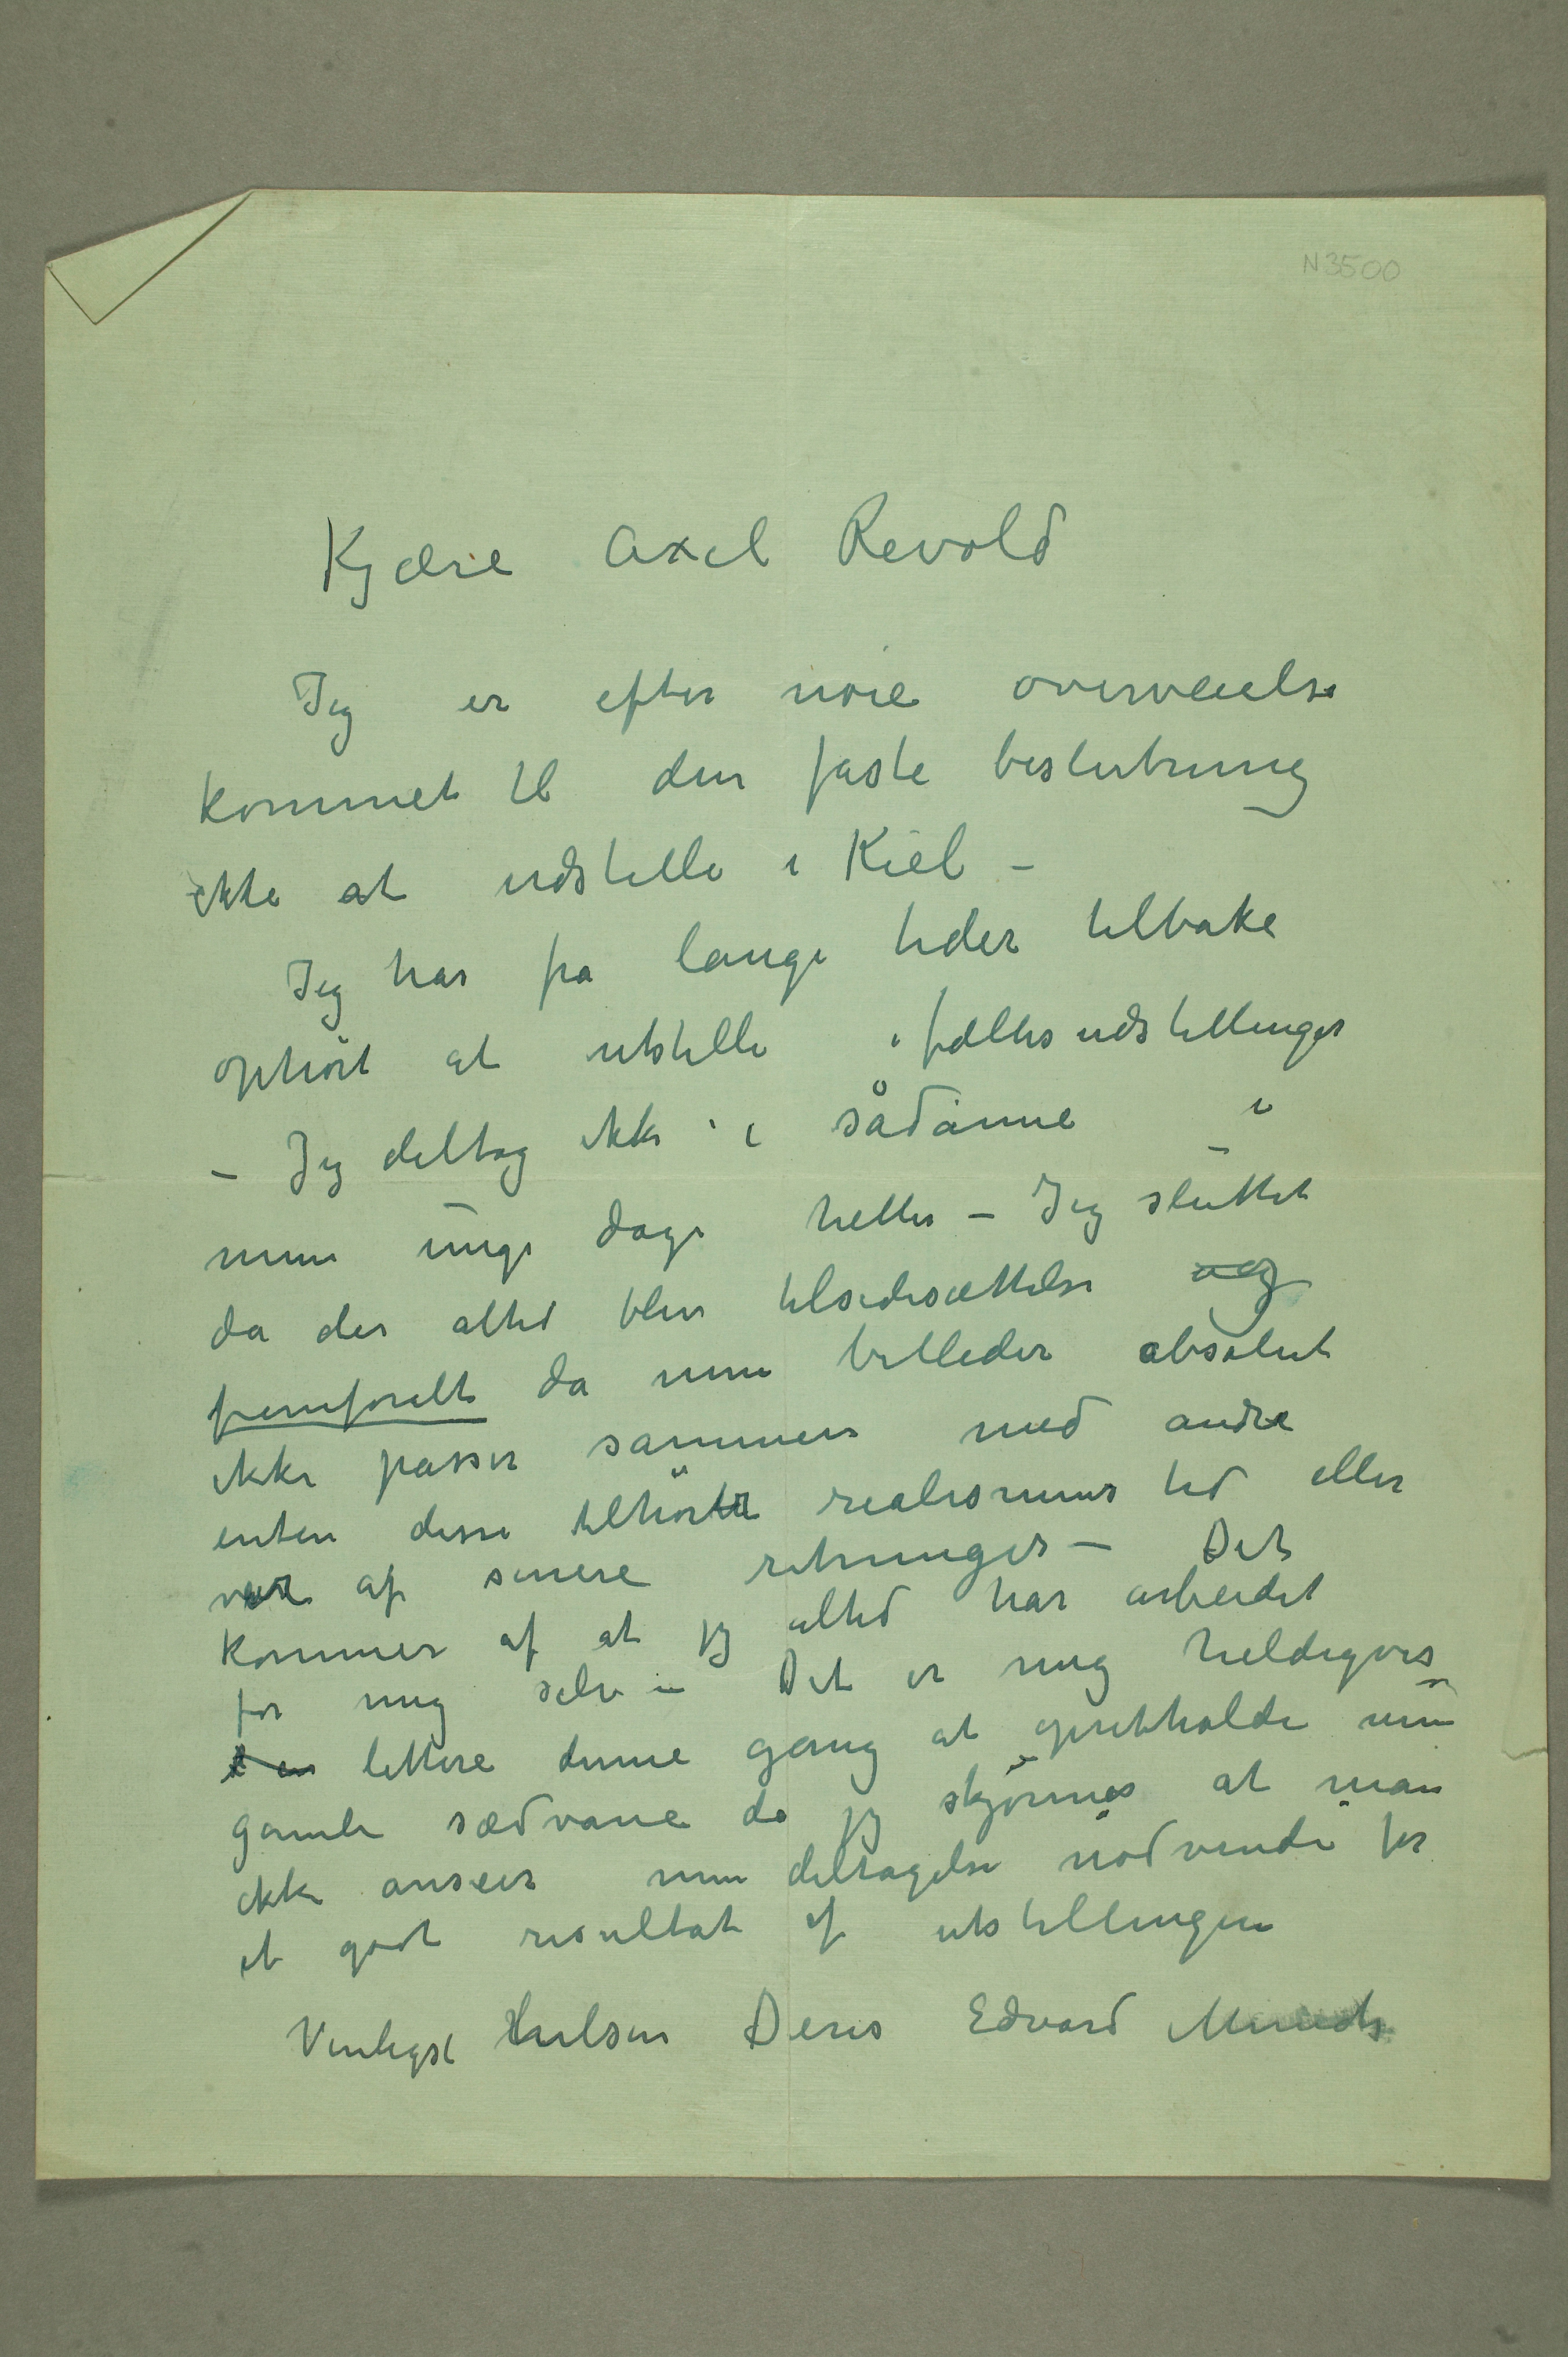 N3500
Kjære Axel Revold
Jeg er efter nöie overveielse
kommet til den faste beslutning
ikke at udstille i Kiel –
Jeg har fra lange tider tilbake
ophört at utstille i fællesudstillinger
– Jeg deltog ikke i sådanne i
mine unge dage heller – Jeg sluttet
da der altid blev tilsidesættelse og
fremforalt da mine billeder absolut
ikke passer sammen med andre
enten disse tilhörte realismens tid eller
var af senere retninger – Det
kommer af at jeg altid har arbeidet
for mig selv – Det er mig heldigvis
lettere denne gang at opretholde min
gamle sædvane da jeg skjönner at man
ikke anseer min deltagelse nödvendi for
et godt resultat af utstillingen
Venligst Hilsen Deres Edvard Munch